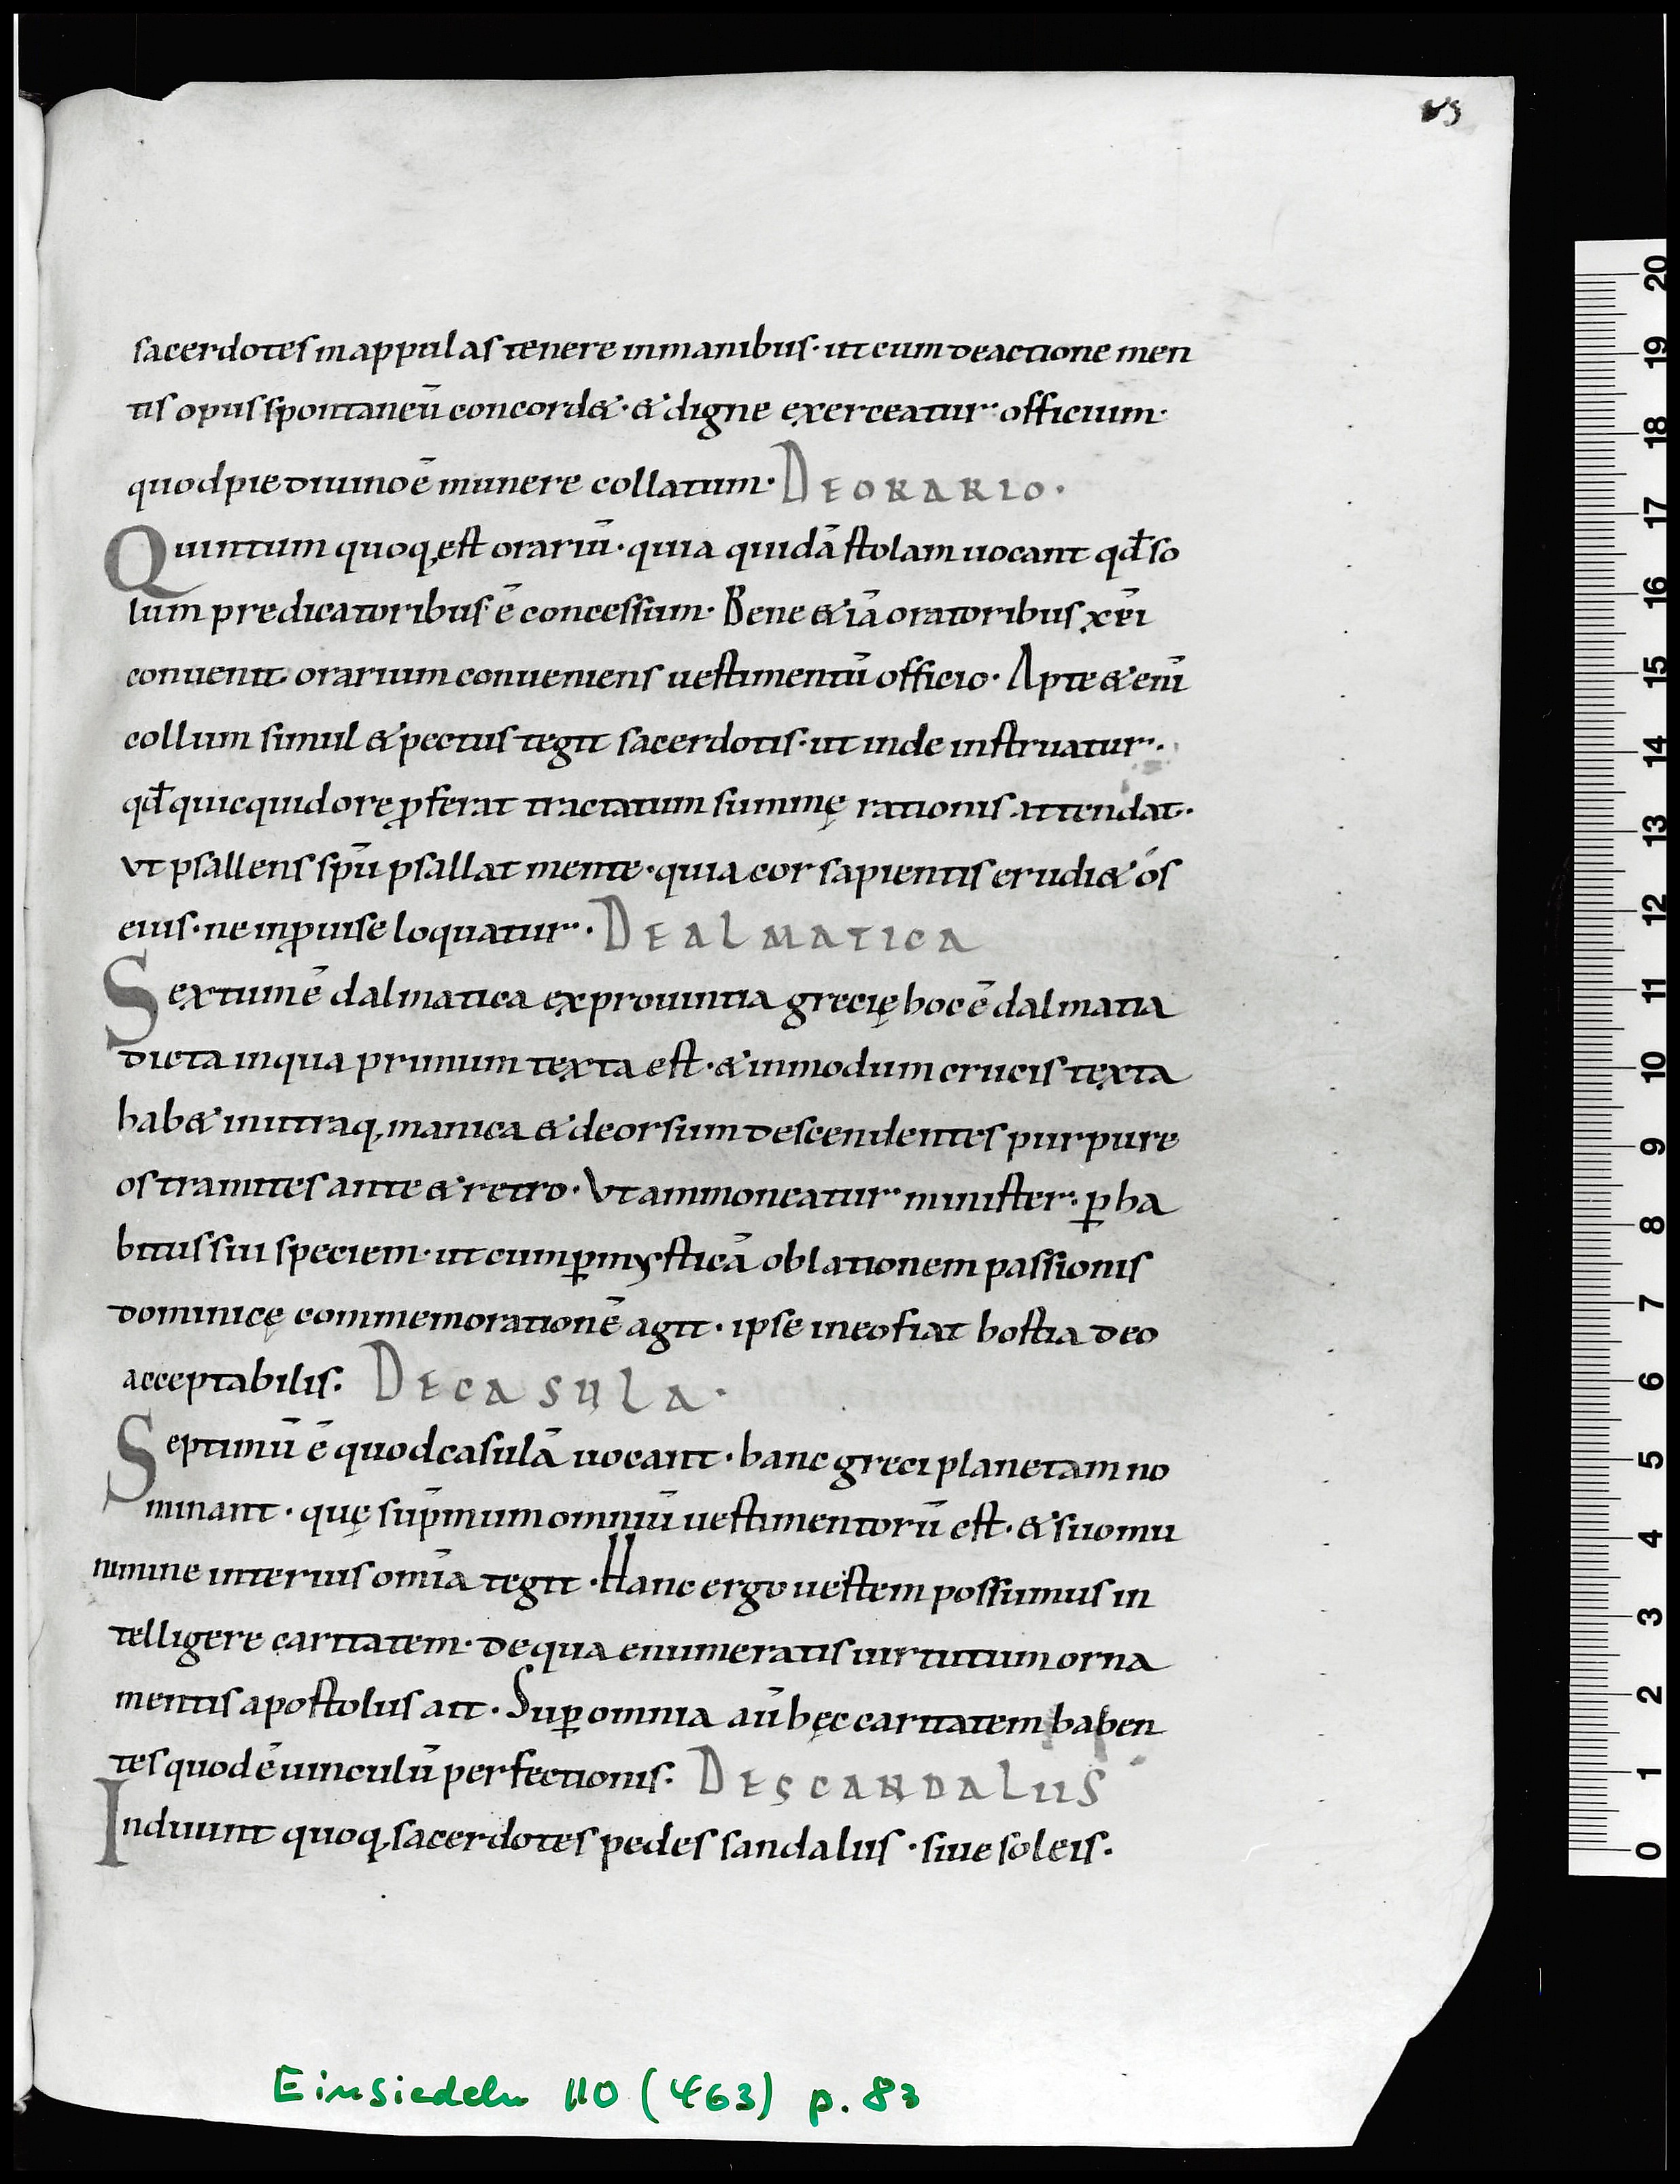 83
sacerdotes mappulas tenere in manibus· ut cum de actione men
tis opus spontaneū concord&· & digne exerceatur officium·
quod pie diuino ē munere collatum· DE ORARIO·
Quintum quoq; est orariū· quia quidā stolam uocant qđ so
lum predicatoribus ē concessum· Bene &iā oratoribus xp̄i
conuenit orarium conueniens uestimentū officio· Apte & enī
collum simul & pectus tegit sacerdotis· ut inde instruatur·
qđ quicquid ore ꝓferat tractatum summę rationis attendat·
Vt psallens spū psallat mente· quia cor sapientis erudi& os
eius· ne inꝓuise loquatur· DE ALMATICA
Sextum ē dalmatica ex prouintia grecię hoc ē dalmatia
dicta in qua primum texta est· & in modum crucis texta
hab& in utraq; manica & deorsum descendentes purpure
os tramites ante & retro· Vt ammoneatur minister· ꝑ ha
bitus sui speciem· ut cum ꝑ mysticā oblationem passionis
dominicę commemorationē agit· ipse in eo fiat hostia deo
acceptabilis· DE CASULA·
Septimū ē quod casulā uocant· hanc greci planetam no
minant· quę sup̄mum omniū uestimentorū est· & suo mu
nimine interius om̄ia tegit· Hanc ergo uestem possumus in
telligere caritatem· de qua enumeratis uirtutum orna
mentis apostolus ait· Suꝑ omnia aū hęc caritatem haben
tes quod ē uinculū perfectionis· DE SCANDALIIS
Induunt quoq; sacerdotes pedes sandaliis· siue soleis·
Einsiedeln 110 (463) p. 83
20
19
18
17
16
15
14
13
12
11
10
9
8
7
6
5
4
3
2
1
0